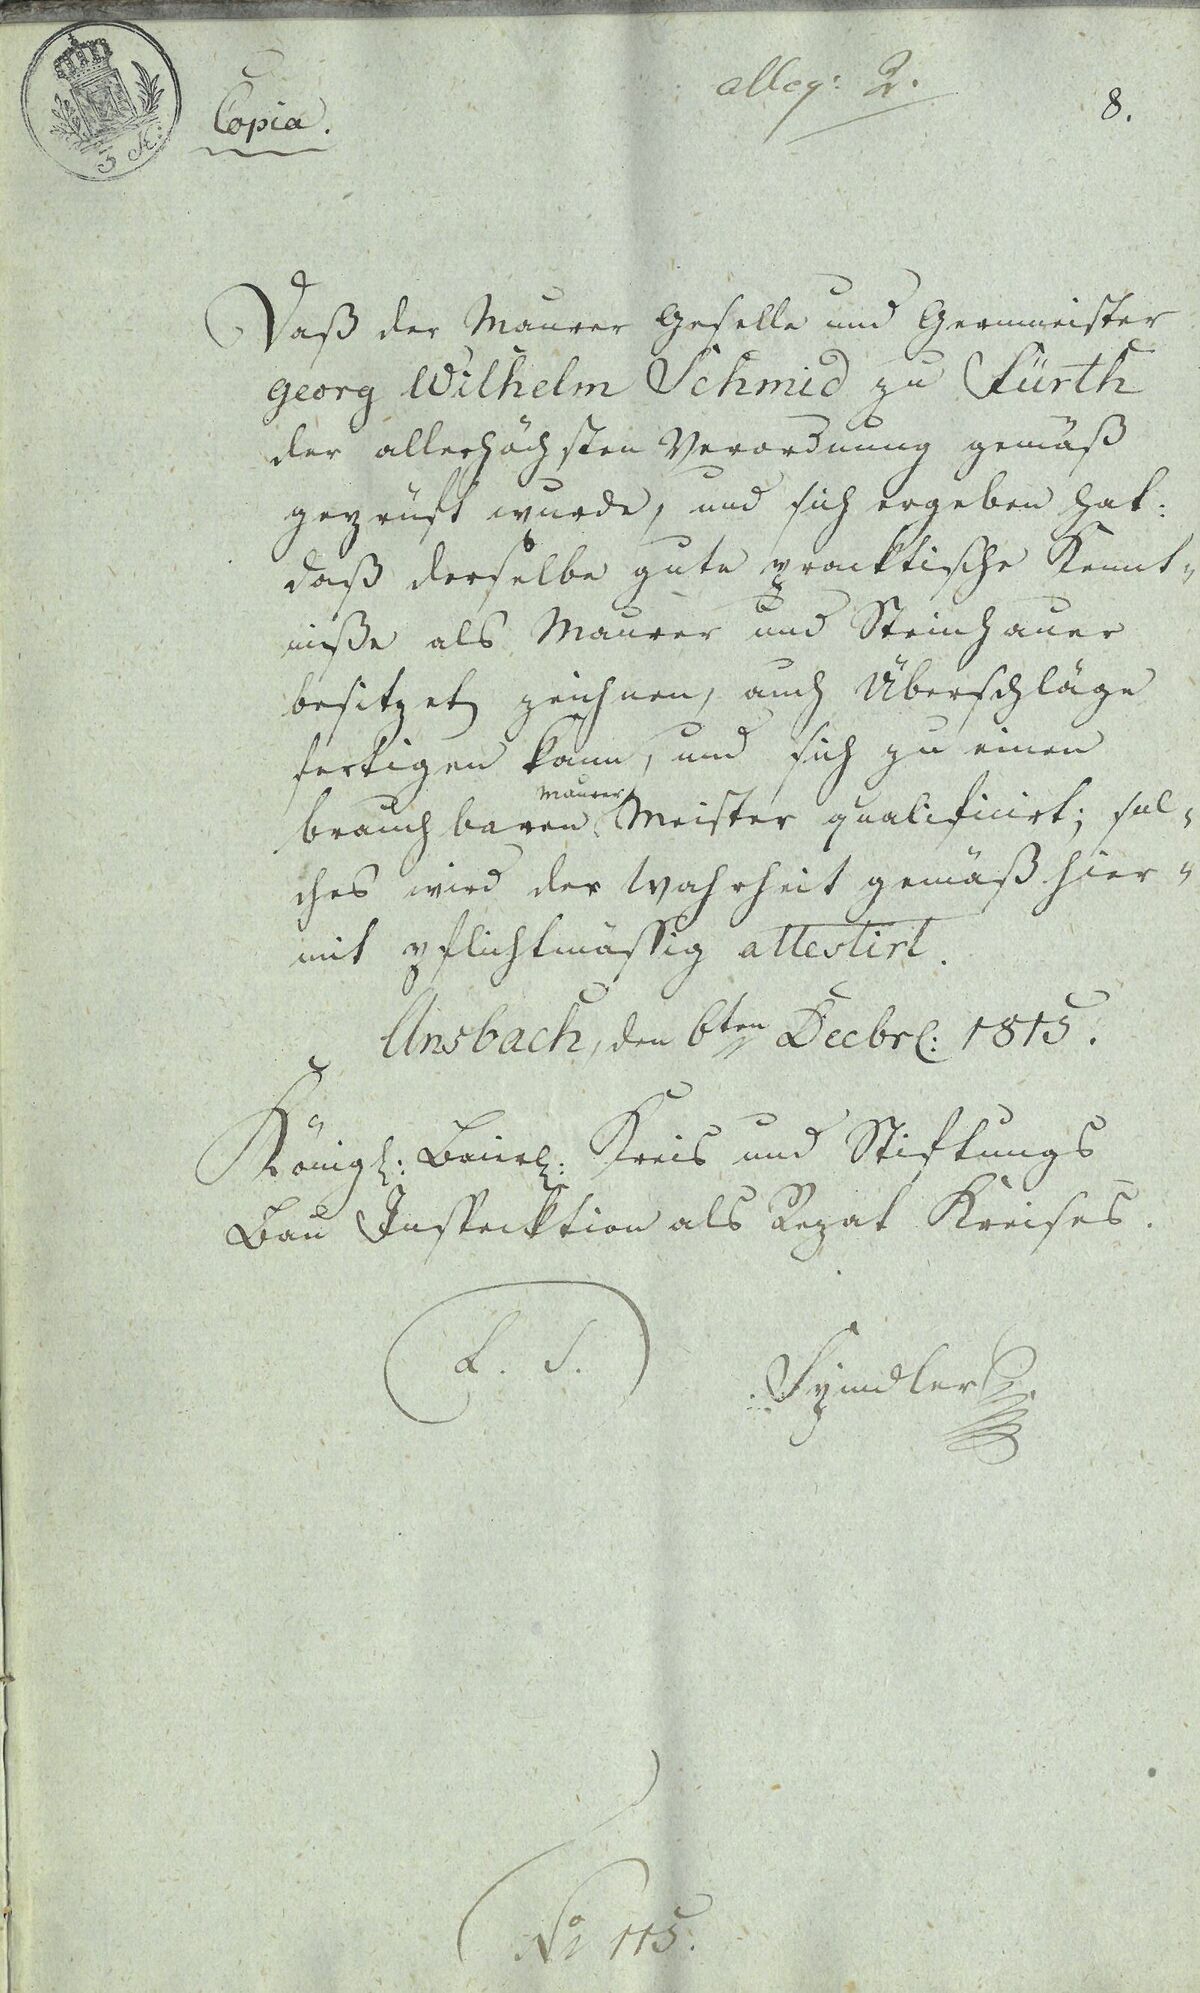 alleg: 2.
8.
Copia.
3 K:
Daß der Maurer Geselle und
Georg Wilhelm Schmid zu Fürth
der allerhöchsten Verordnung gemäß
geprüft wurde, und sich ergeben hat:
daß derselbe gute pracktische Kennt„
niße als Maurer und Steinhauer
besitzet, zeichnen, auch Überschläge
fertigen kann, und sich zu einen
brauchbaren Maurer Meister qualificirt; sol„
ches wird der Wahrheit gemäß hier„
mit pflichtmässig attestirt.
Ansbach, den 6ten Decbr: 1815.
Königl: Baier: Kreis und Stiftungs
Bau Inspecktion als Rezat Kreises.
L. S.
Spindler
No 115.